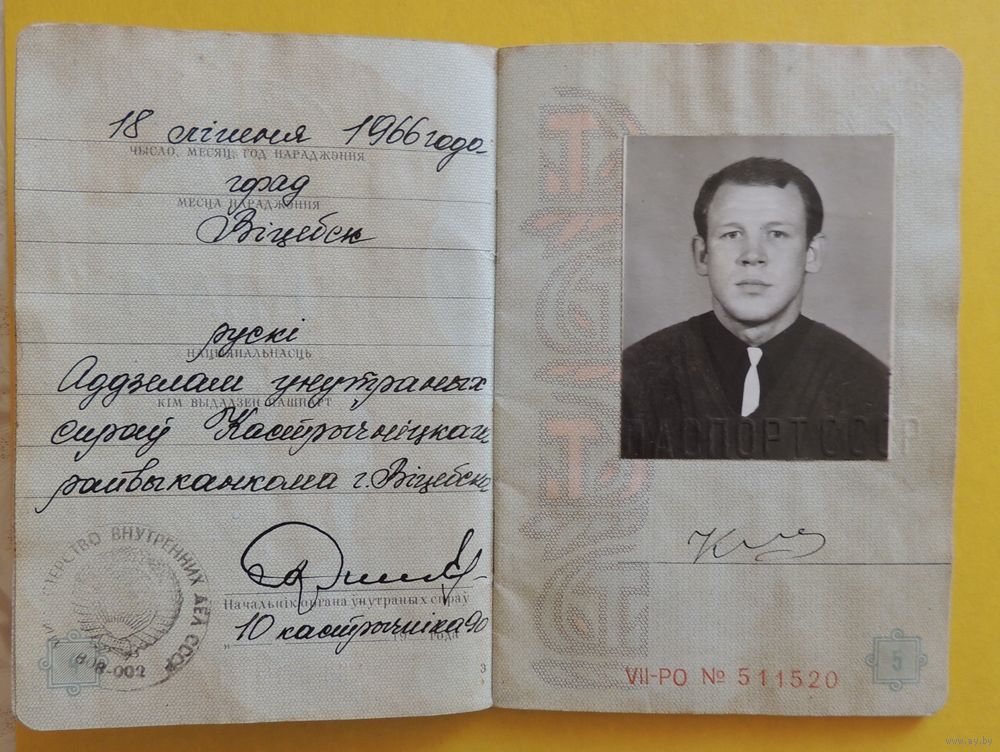 18 ліпеня 1966 года
ЧЫСЛО, МЕСЯЦ, ГОД НАРАДЖЭННЯ
град
МЕСЦА НАРАДЖЭННЯ
Віцебск
рускі
НАЦЫЯНАЛЬНАСЦЬ
Аддзелам унутраных
КІМ ВЫДАДЗЕН ПАШПАРТ
спраў Кастрычніцкага
райвыканкома г. Віцебска
ТЕРСТВО ВНУТРЕННИХ ДЕЛ СССР
808-002
Начальнік органа ўнутраных спраў
10 кастрычніка 90
19 года
3
ПАСПОРТ СССР
VII-РО № 511520
5
www.ay.by